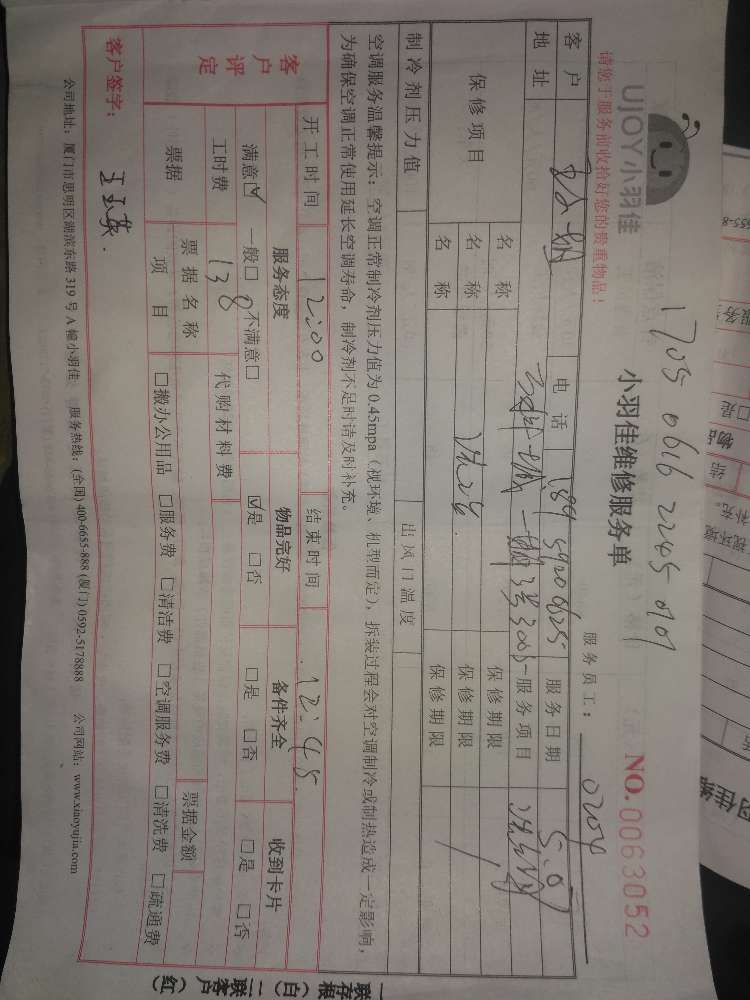 1705 0616 2245 079
UJOY小羽佳
小羽佳维修服务单
NO. 0063052
请您于服务前收拾好您的贵重物品！
服务员工： 0204
客户 电话 189 5920 6625 服务日期 5.0
地址 服务项目
保修项目 名称 保修期限
名称 保修期限
名称 保修期限
制冷剂压力值 出风口温度
空调服务温馨提示：空调正常制冷剂压力值为0.45mpa（视环境、机型而定），拆装过程会对空调制冷或制热造成一定影响，
为确保空调正常使用延长空调寿命，制冷剂不足时请及时补充。
开工时间 12:00 结束时间 12:45
客户评定
服务态度 物品完好 备件齐全 收到卡片
满意☑ 一般□ 不满意□ ☑是 □否 □是 □否 □是 □否
工时费 138 代购材料费
票据 票据名称 票据金额
项目 □搬办公用品 □服务费 □清洁费 □空调服务费 □清洗费 □疏通费
客户签字：
公司地址：厦门市思明区湖滨东路319号A幢小羽佳 服务热线：(全国) 400-6655-888 (厦门) 0592-5178888 公司网站：www.xiaoyujia.com
一联存根（白）二联客户（红）